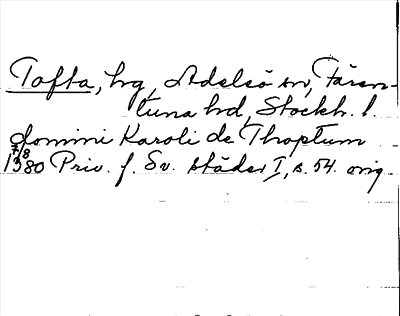 Tofta, hg, Adelsö sn, Fären-
tuna hd, Stockh. l.
domini Karoli de Thoptum
7/8
1380 Priv. f. Sv. städer I, s. 54. orig.